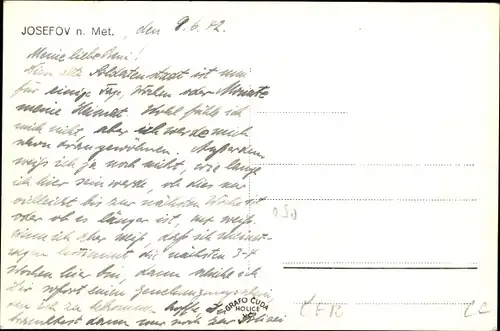 JOSEFOV n. Met., den 9.6.42.
Meine liebe !
Diese alte Soldatenstadt ist nun
für einige Tage, Wochen oder Monate
meine Heimat. Wohl fühle ich
mich nicht, aber ich werde mich
schon daran gewöhnen. Außerdem
weiß ich ja noch nicht, wie lange
ich hier sein werde, ob dies nur
vielleicht bis zur nächsten Woche ist
oder ob es länger ist, wer weiß.
Wenn ich aber weiß, daß ich
wegen bestimmt die nächsten 3-4
Wochen hier bin, dann schicke ich
Dir sofort einen Genehmigungsschein
um ich zu bekommen hoffe, Du
brauchtest dann nur noch zur Polizei
GRAFO ČUDA
HOLICE